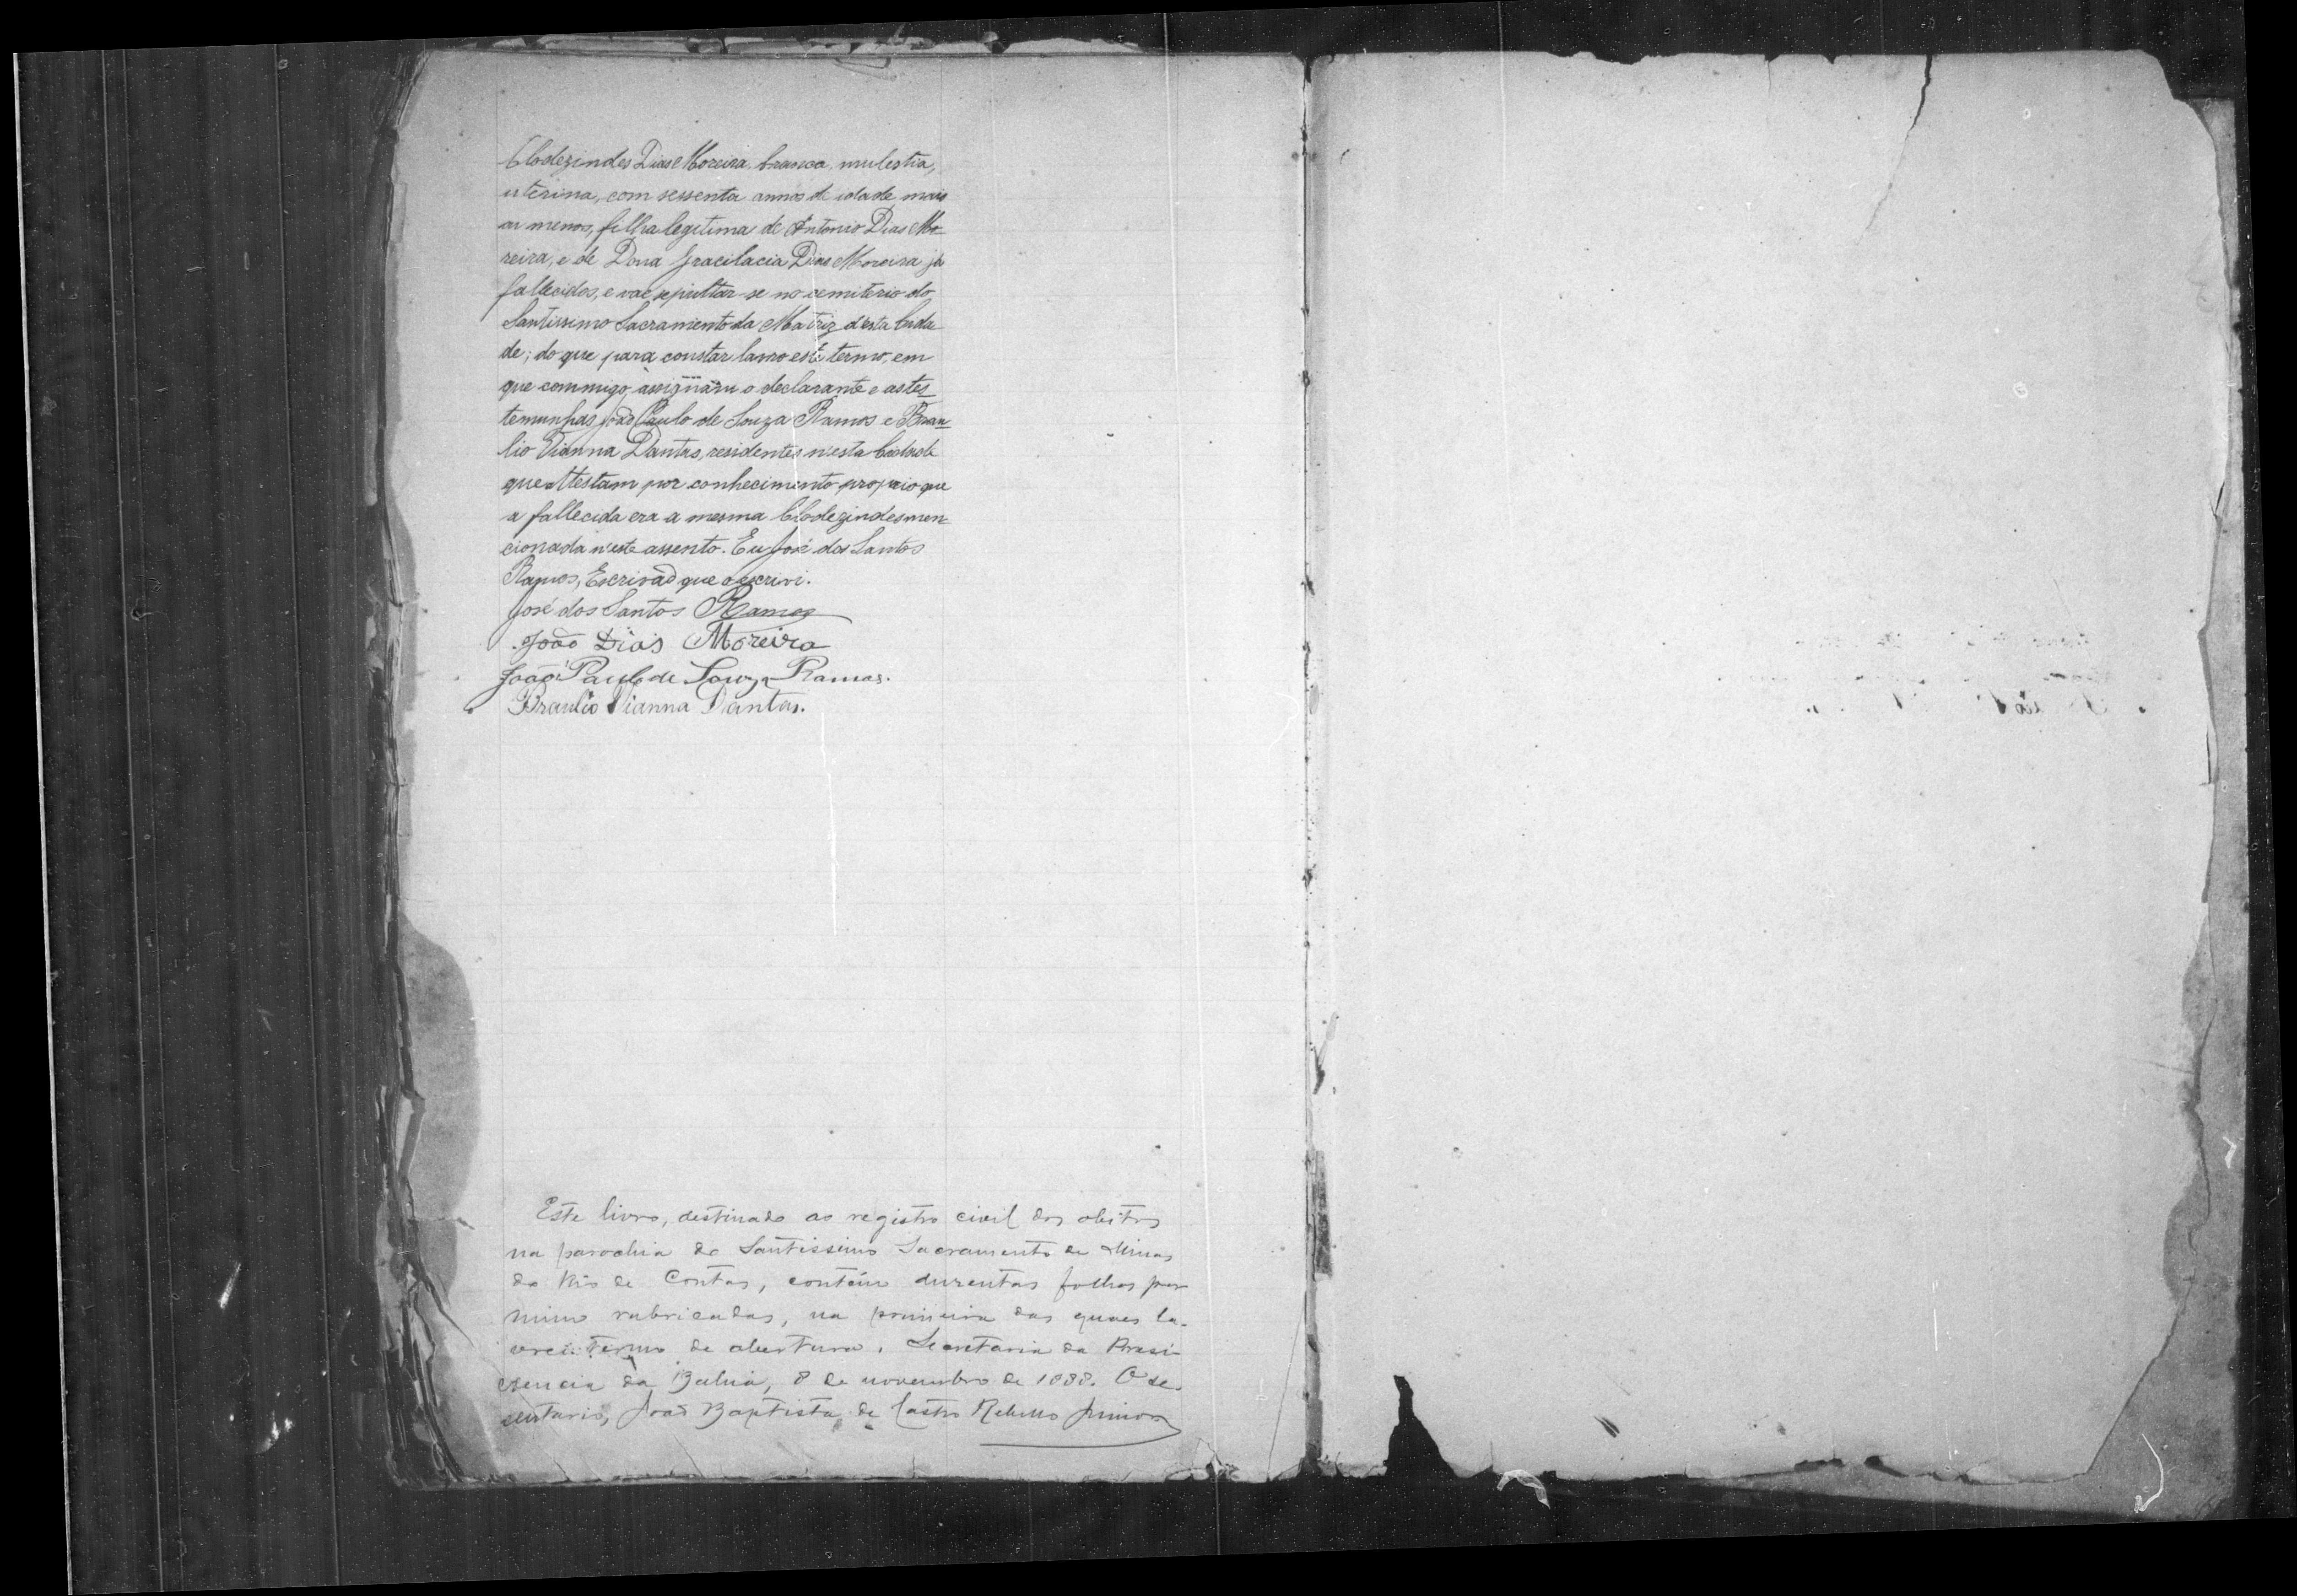 Clodezindes Dias Moreira, branca, mulestia,
uterina, com sessenta annos de idade mais
ou menos, filha legitima de Antonio Dias Mo-
reira, e de Dona Gracilacia Dias Moreira já
fallecidos, e vae sepultar-se no cemiterio do
Santissimo Sacramento da Matriz d'esta Cida-
de; do que para constar lavro este termo, em
que commigo assignaram o declarante e as tes-
temunhas João Paulo de Souza Ramos e Brau-
lio Vianna Dantas, residentes n'esta Cidade
que attestam por conhecimento proprio que
a fallecida era a mesma Clodezindes men-
cionada n'este assento. Eu José dos Santos
Ramos, Escrivão que o escrivi.
José dos Santos Ramos
João Dias Moreira
João Paulo de Souza Ramos.
Braulio Vianna Dantas.
Este livro, destinado ao registro civil dos obitos
na parochia do Santissimo Sacramento de Minas
do Rio de Contas, contém duzentas folhas por
mim rubricadas, na primeira das quaes la-
vrei termo de abertura. Secretaria da Presi-
dencia da Bahia, 8 de novembro de 1888. O se-
cretario, João Baptista de Castro Rebello Junior